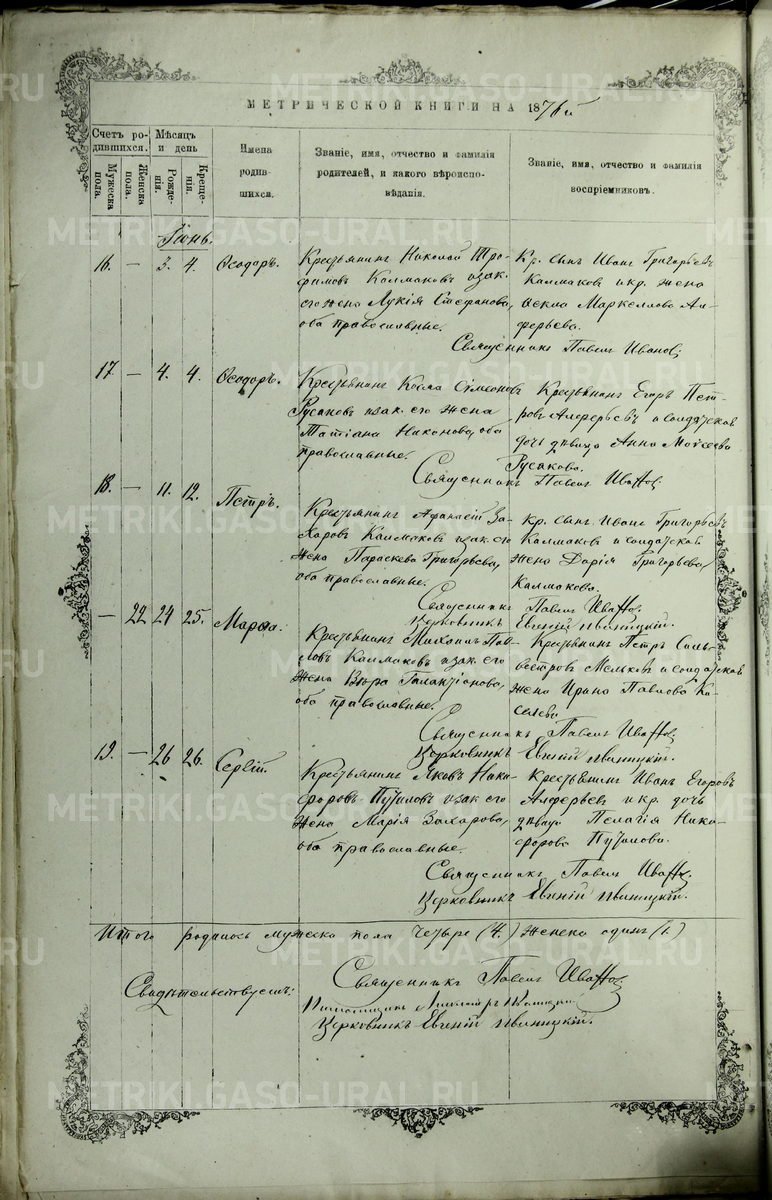 МЕТРИЧЕСКОЙ КНИГИ НА 1876й
Счетъ ро-
дившихся.
Мѣсяцъ
и день
Мужеска
пола.
Женска
пола.
Рожде-
нія.
Креще-
нія.
Имена
родив-
шихся.
Званіе, имя, отчество и фамилія
родителей, и какого вѣроиспо-
вѣданія.
Званіе, имя, отчество и фамилія
воспріемниковъ.
Іюнь.
16. — 3. 4. Ѳеодоръ.
Крестьянинъ Николай Тро-
фимовъ Калмаковъ и зак.
его жена Лукія Стефанова,
оба православные.
Кр. сынъ Иванъ Григорьевъ
Калмаков и кр. жена
Ѳекла Маркеллова Ал-
ферьева.
Священникъ Павелъ Ивановъ
17. — 4. 4. Ѳеодоръ.
Крестьянинъ Косма Симеоновъ
Русаковъ и зак. его жена
Татіана Никонова, оба
православные.
Крестьянинъ Егоръ Пет-
ровъ Алферьевъ и солдатская
дочь дѣвица Анна Моисеева
Русакова.
Священникъ Павелъ Ивановъ
18. — 11. 12. Петръ.
Крестьянинъ Афанасій За-
харовъ Калмаковъ и зак. его
жена Параскева Григорьева,
оба православные.
Кр. сынъ Иванъ Григорьевъ
Калмаков и солдатская
жена Дарія Григорьева
Калмакова.
Священникъ Павелъ Ивановъ
Церковникъ Евгеній
— 22 24 25. Марѳа.
Крестьянинъ Михаилъ Пав-
ловъ Калмаковъ и зак. его
жена Вѣра Галактіонова,
оба православные.
Крестьянинъ Петръ Силь-
вестровъ Мельковъ и солдатская
жена Ирина Павлова Ки-
селева
Священникъ Павелъ Ивановъ
Церковникъ Евгеній
19. — 26 26. Сергій.
Крестьянинъ Яковъ Ники-
форовъ Путиловъ и зак. его
жена Марія Захарова,
оба православные.
Крестьянинъ Иванъ Егоровъ
Алферьевъ и кр. дочь
дѣвица Пелагія Ники-
форова Путилова.
Священникъ Павелъ Ивановъ
Церковникъ Евгеній
Итого родилось мужеска пола четыре (4.) женска одинъ (1.)
Свидѣтельствуемъ:
Священникъ Павелъ Ивановъ
Псаломщикъ
Церковникъ Евгеній
METRIKI.GASO-URAL.RU